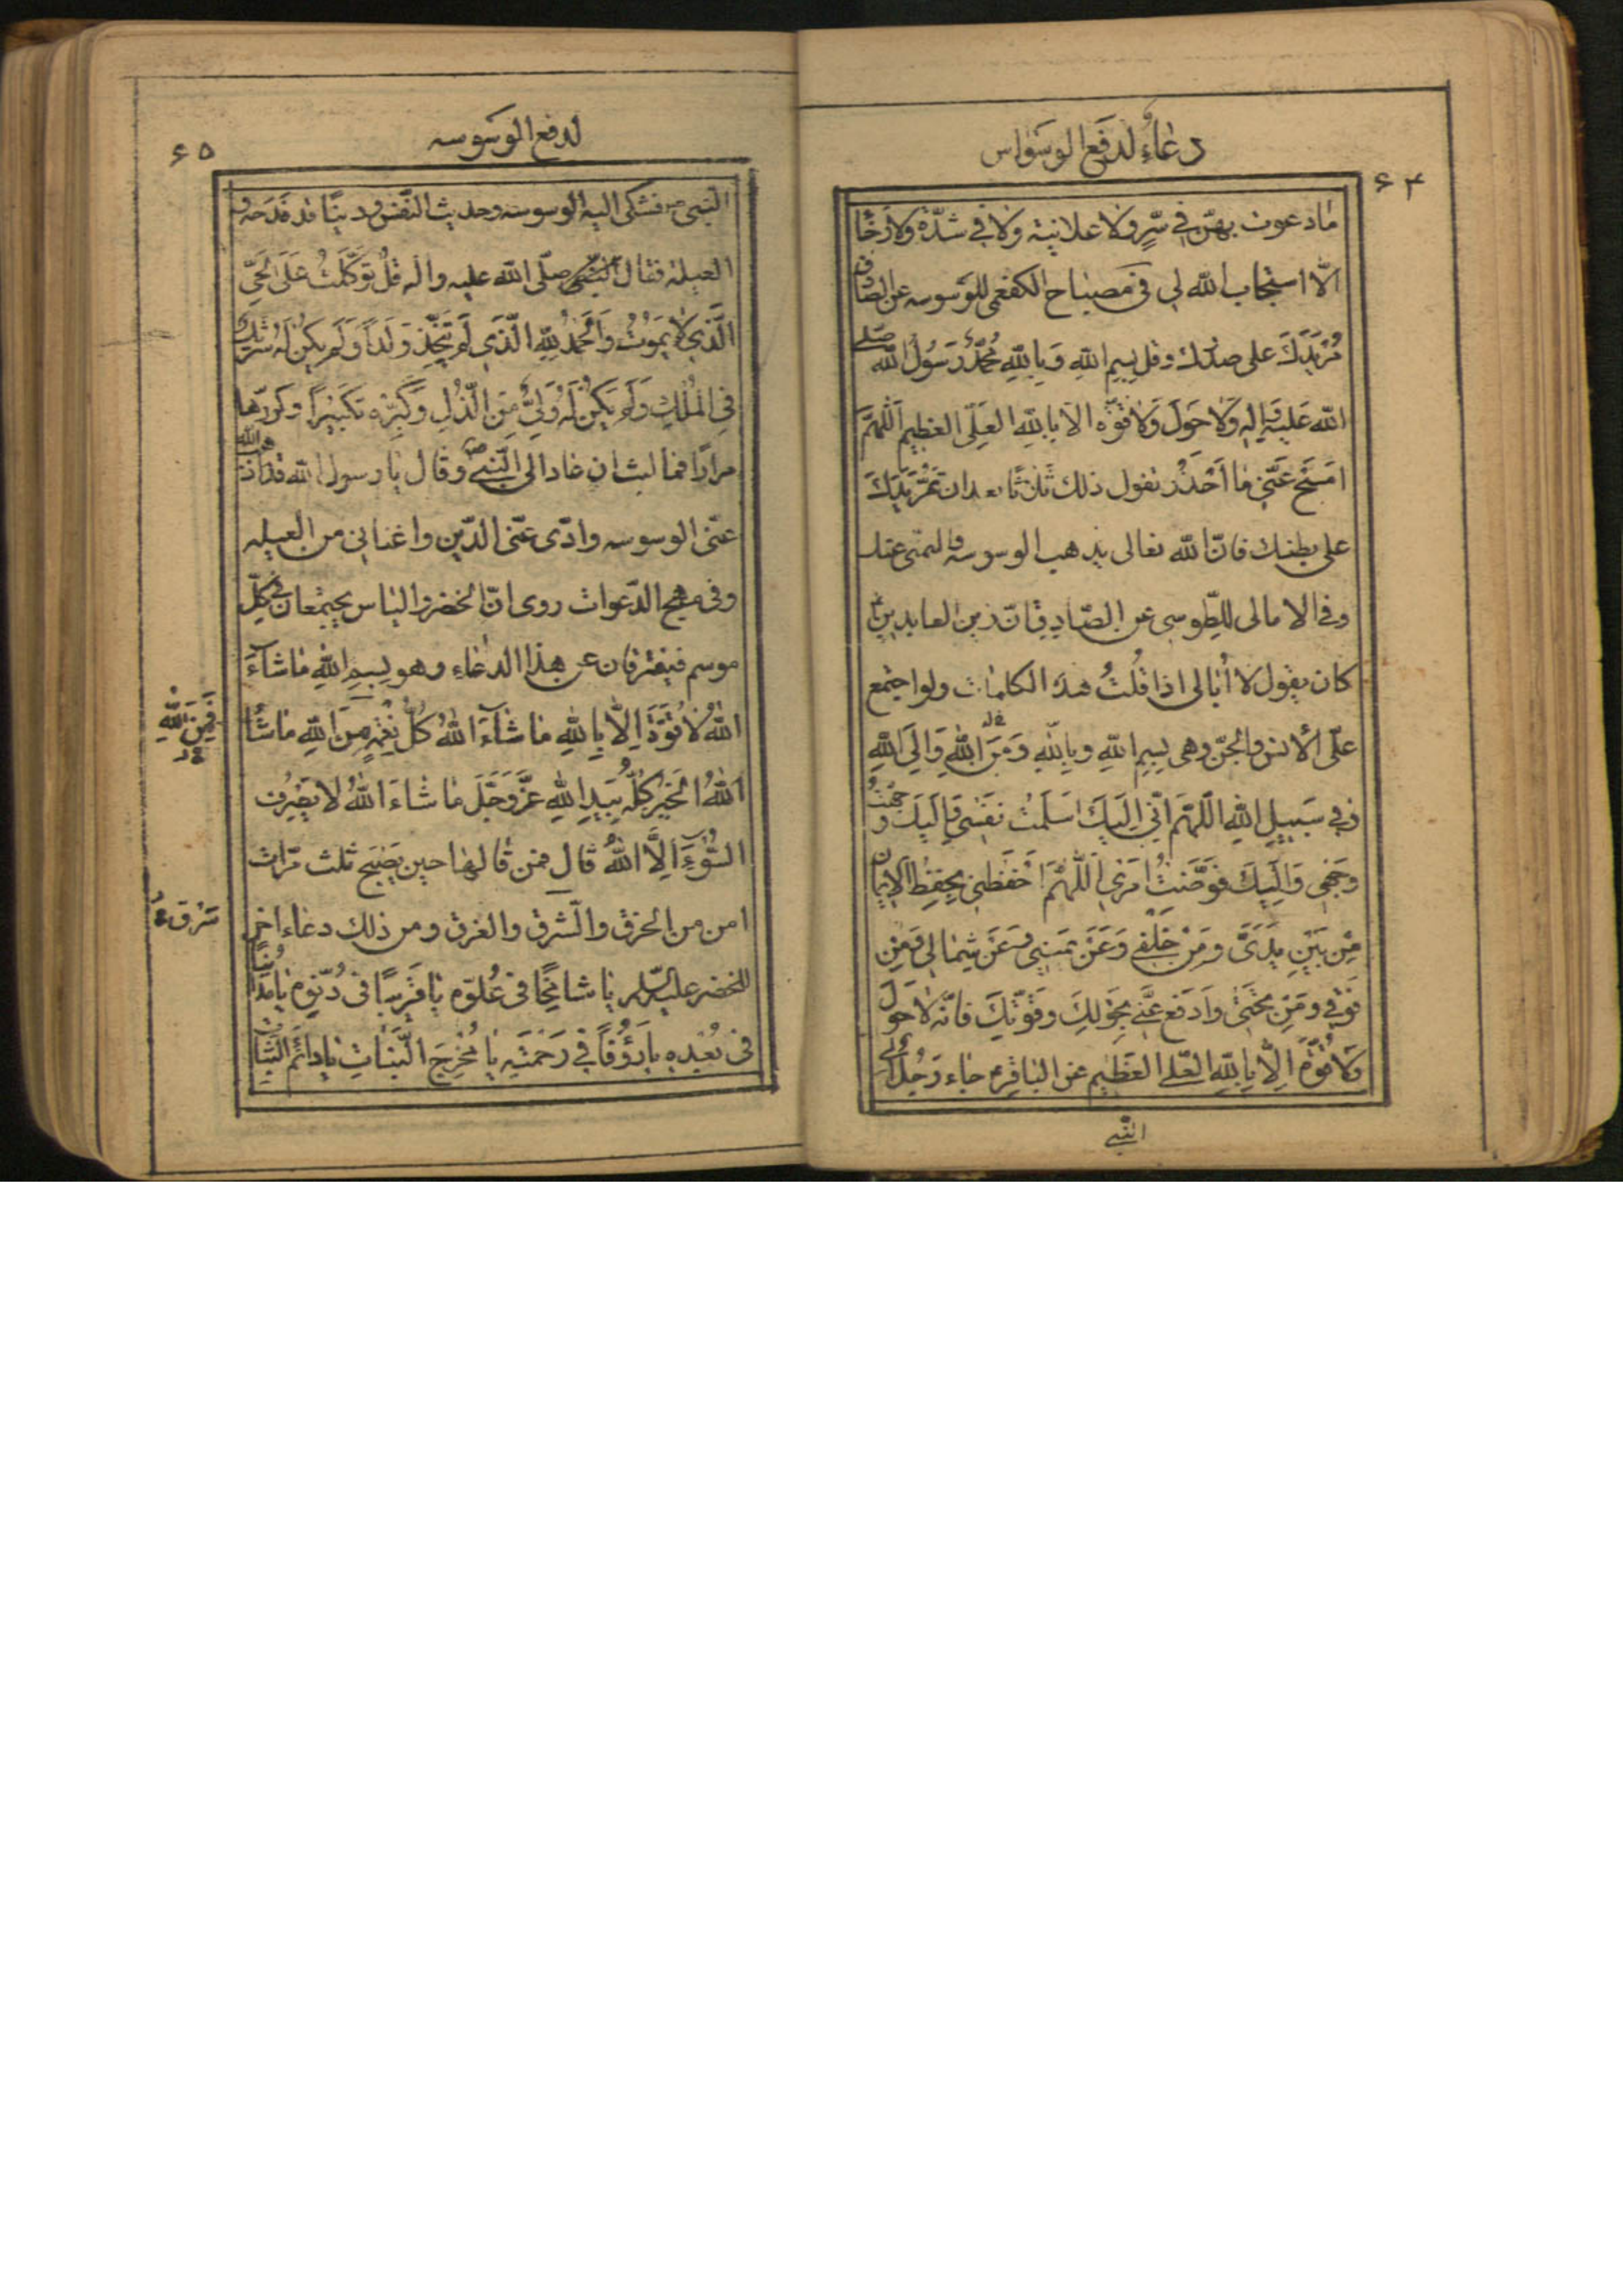 دعاء لدفع الوسواس
۶۴
ما دعوت بهنّ في سرّ ولا علانية ولا في شدّة ولا رخا
الّا استجاب الله لي في مصباح الكفعمي للوسوسه عن الصادق
مُرَّ يَدَكَ على صدرك وقل بِسمِ اللهِ وَبِاللهِ مُحَمَّدٌ رَسُولُ اللهِ صَلّى
اللهُ عَلَيْهِ وَالِهِ وَلا حَوْلَ وَلا قُوَّةَ الّا بِاللهِ العَلِيِّ العَظِيمِ اَللّهُمَّ
امسَحْ عَنّي ما اَحْذَرُ تقول ذلك ثلثًا بعد ان تمُرَّ يَدَكَ
على بطنك فانّ الله تعالى يذهب الوسوسه والتمنّى عنك
وفي الامالى للطّوسى عن الصّادق انّ زين العابدين ع
كان يقول لا أُبالى اذا قُلتُ هذه الكلمات ولو اجتمع
علىّ الأنس والجنّ وهى بِسمِ اللهِ وبِاللهِ وَمِنَ اللهِ وَاِلَى اللهِ
وَفي سَبيلِ اللهِ اَللّهُمَّ اِنّي اِلَيكَ اَسلَمتُ نَفسي وَاِلَيكَ وَجَّهتُ
وَجهي وَاِلَيكَ فَوَّضتُ اَمري اَللّهُمَّ احفَظني بِحِفظِ الايمانِ
مِن بَينِ يَدَىَّ وَمِن خَلْفي وَعَن يَميني وَعَن شِمالي وَمِن
فَوقي وَمِن تَحتي وَادفَع عَنّي بِحَولِكَ وَقُوَّتِكَ فَانَّهُ لا حَولَ
وَلا قُوَّةَ اِلّا بِاللهِ العَلِيِّ العَظيمِ عن الباقر ع جاء رَجُلٌ الى
النّبي
لدفع الوسوسه
۶۵
النّبى ص فشكى اليه الوسوسه وحديث النّفس ودينًا قد فدحه و
العيلة فقال النّبى صلّى الله عليه واله قل تَوَكَّلتُ عَلَى الحَيِّ
الَّذي لا يَمُوتُ وَالحَمدُ لِلّهِ الَّذي لَم يَتَّخِذ وَلَدًا وَلَم يَكُن لَهُ شَريكٌ
فِي المُلكِ وَلَم يَكُن لَهُ وَلِيٌّ مِنَ الذُّلِّ وَكَبِّرهُ تَكبيرًا وكرّرها
مرارًا فما لبث ان عاد الى النّبي ص وقال يا رسول الله قد اذهب الله
عنّى الوسوسه وادّى عنّى الدّين واغنانى من العيله
وفى مهج الدّعوات روى انّ الخضر والياس يجتمعان في كلّ
موسم فيفترقان عن هذا الدعاء وهو بِسمِ اللهِ ما شاءَ
اللهُ لا قُوَّةَ اِلّا بِاللهِ ما شاءَ اللهُ كُلُّ نِعمَةٍ مِنَ اللهِ ما شاءَ
فَمِنَ اللهِ
اللهُ الخَيرُ كُلُّهُ بِيَدِ اللهِ عَزَّ وَجَلَّ ما شاءَ اللهُ لا يَصرِفُ
السُّوءَ اِلَّا اللهُ قال فمن قالها حين يصبح ثلث مرّات
امن من الحرق والشرق والغرق ومن ذلك دعاء اخر
سَرَق
للخضر عليه السّلم يا شامِخًا في عُلُوِّه يا قَريبًا في دُنُوِّه يا مُدانِيًا
في بُعدِه يا رَؤُفًا في رَحمَتِه يا مُخرِجَ النَّباتِ يا دائِمَ الثَّباتِ